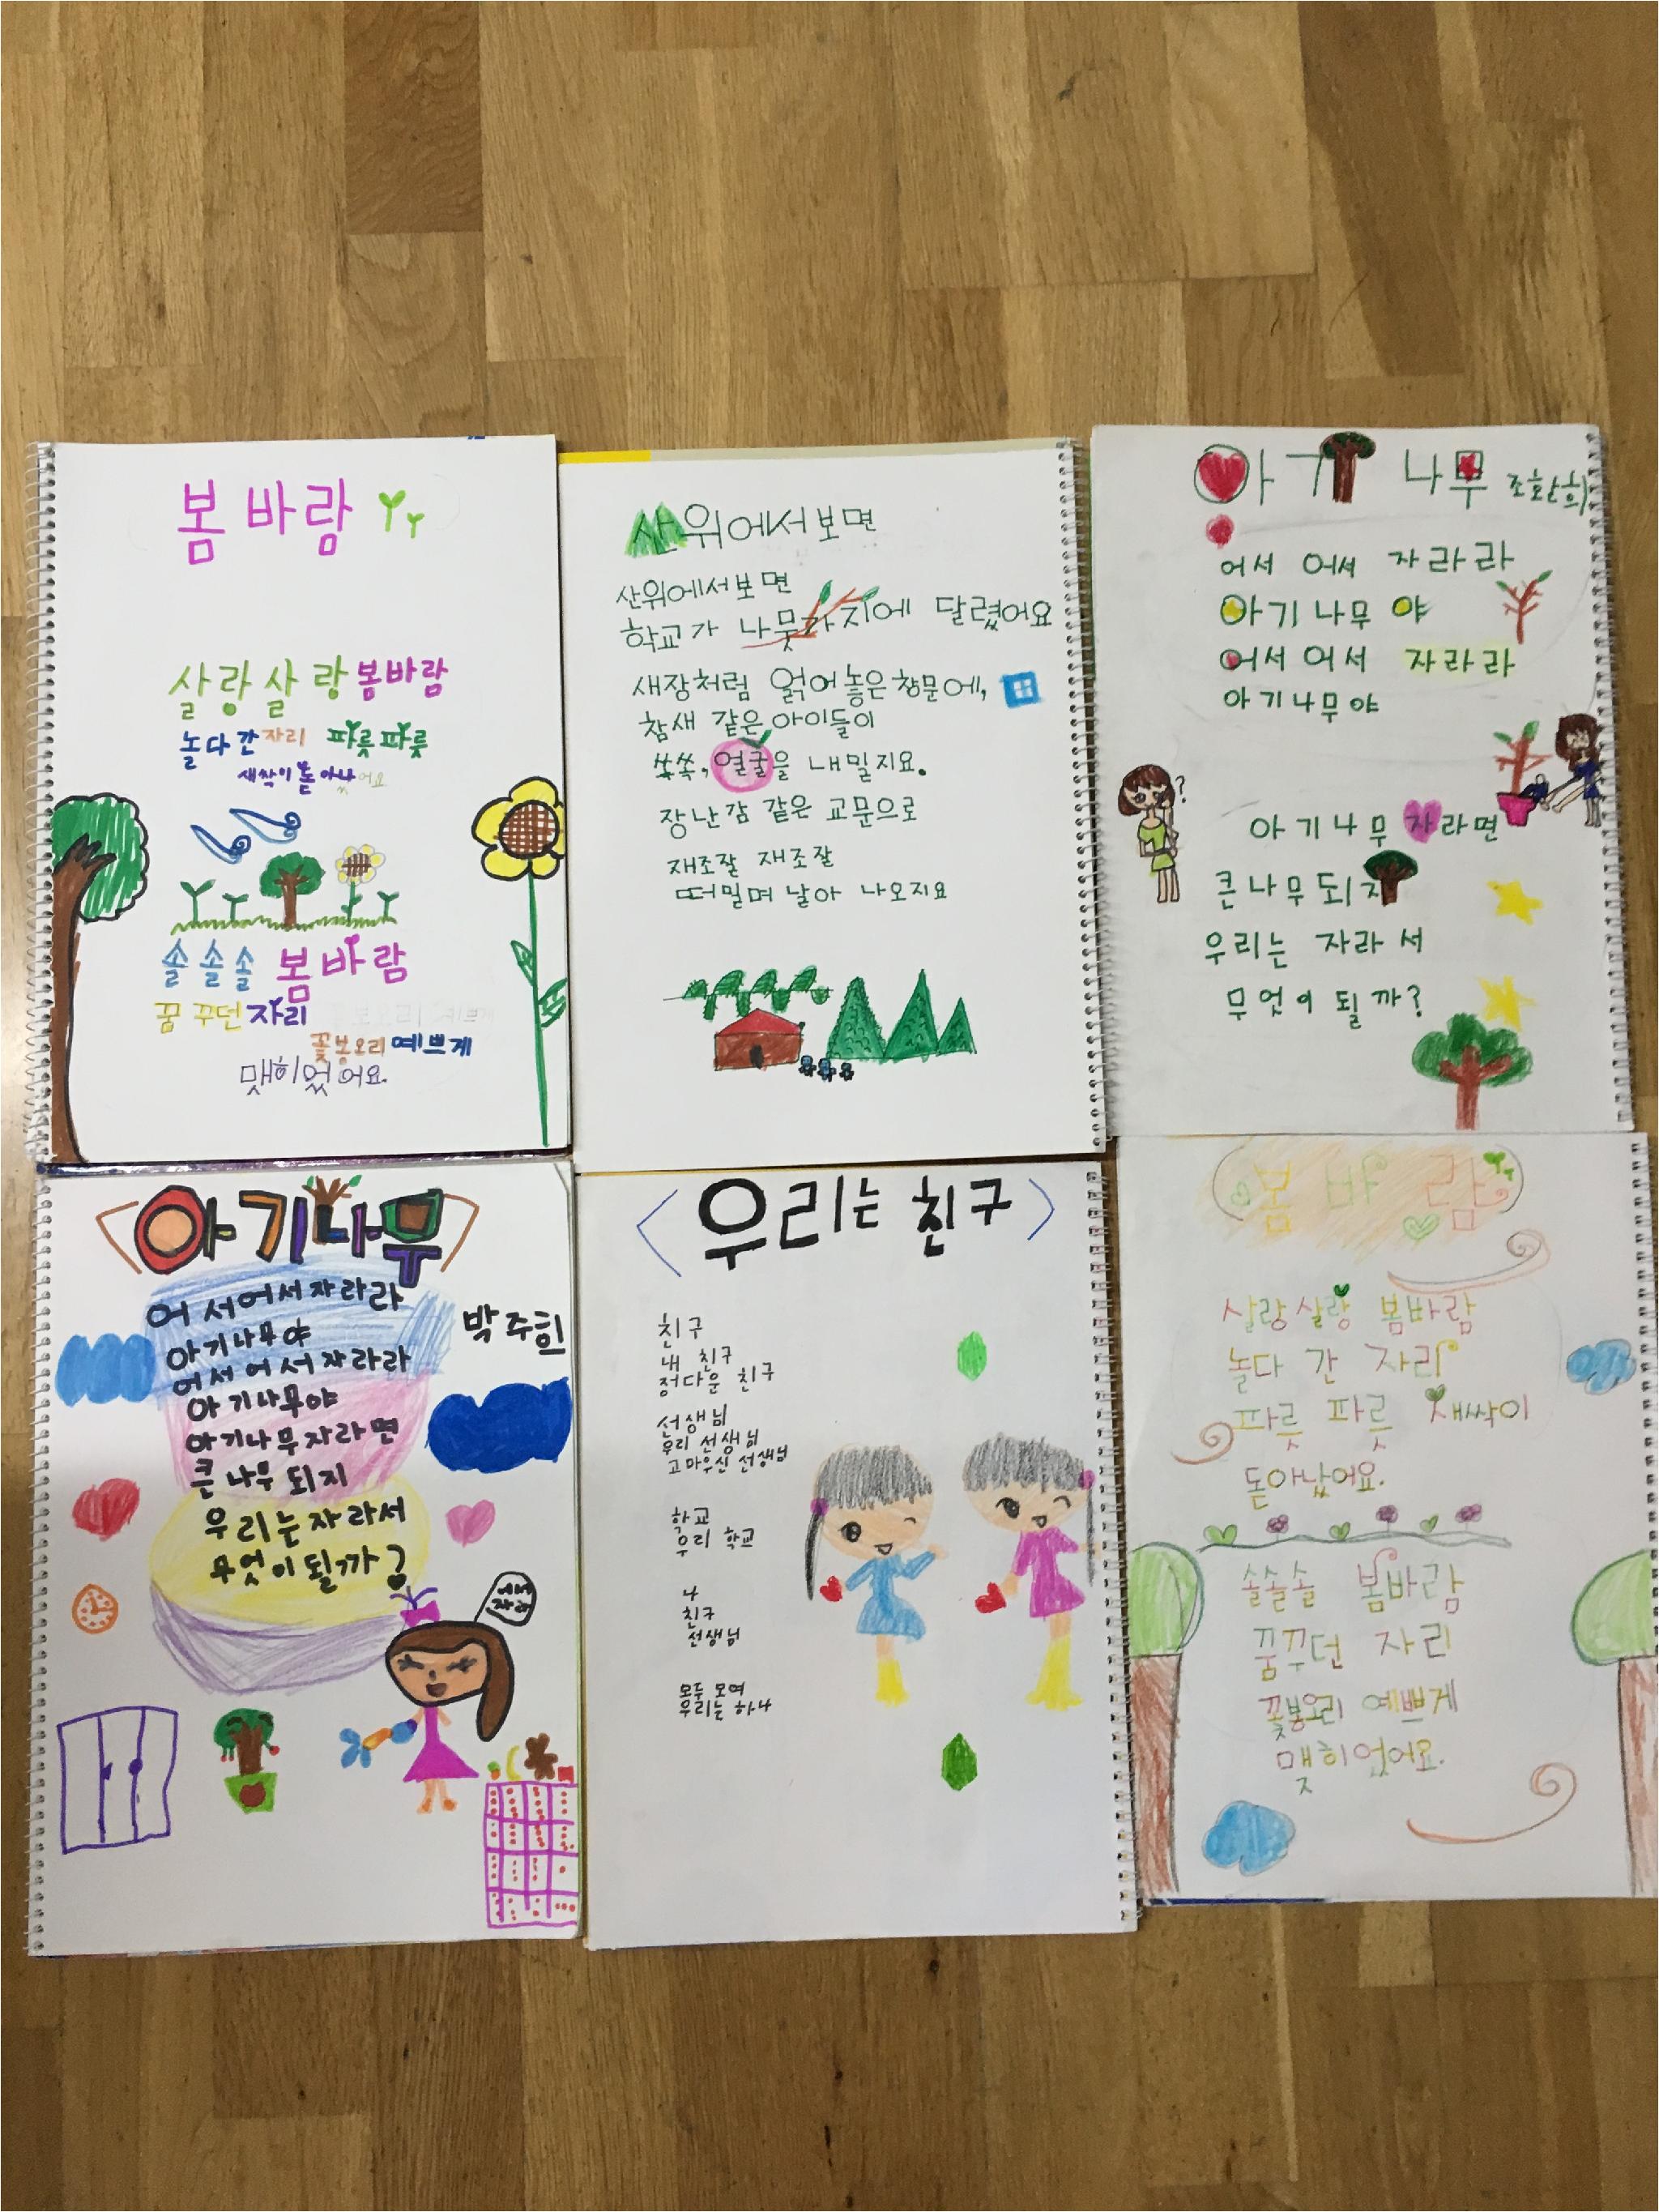 봄바람
살랑살랑봄바람
놀다간자리 파릇파릇
새싹이돋아났어요
솔솔솔 봄바람
꿈꾸던자리
꽃봉오리예쁘게
맺히었어요.
산위에서보면
산위에서보면
학교가 나뭇가지에 달렸어요
새장처럼 얽어놓은창문에,
참새 같은아이들이
쏙쏙, 얼굴을 내밀지요.
장난감 같은 교문으로
재조잘 재조잘
떠밀며 날아 나오지요
아기나무
어서 어서 자라라
아기나무야
어서어서 자라라
아기나무야
?
아기나무자라면
큰나무되지
우리는 자라서
무엇이 될까?
<아기나무>
박주희
어서어서자라라
아기나무야
어서어서자라라
아기나무야
아기나무자라면
큰나무되지
우리는자라서
무엇이될까?
<우리는 친구>
친구
내 친구
정다운 친구
선생님
우리 선생님
고마우신 선생님
학교
우리 학교
나
친구
선생님
모두 모여
우리는 하나
(봄바람)
살랑살랑 봄바람
놀다 간 자리
파릇 파릇 새싹이
돋아났어요.
솔솔솔 봄바람
꿈꾸던 자리
꽃봉오리 예쁘게
맺히었어요.